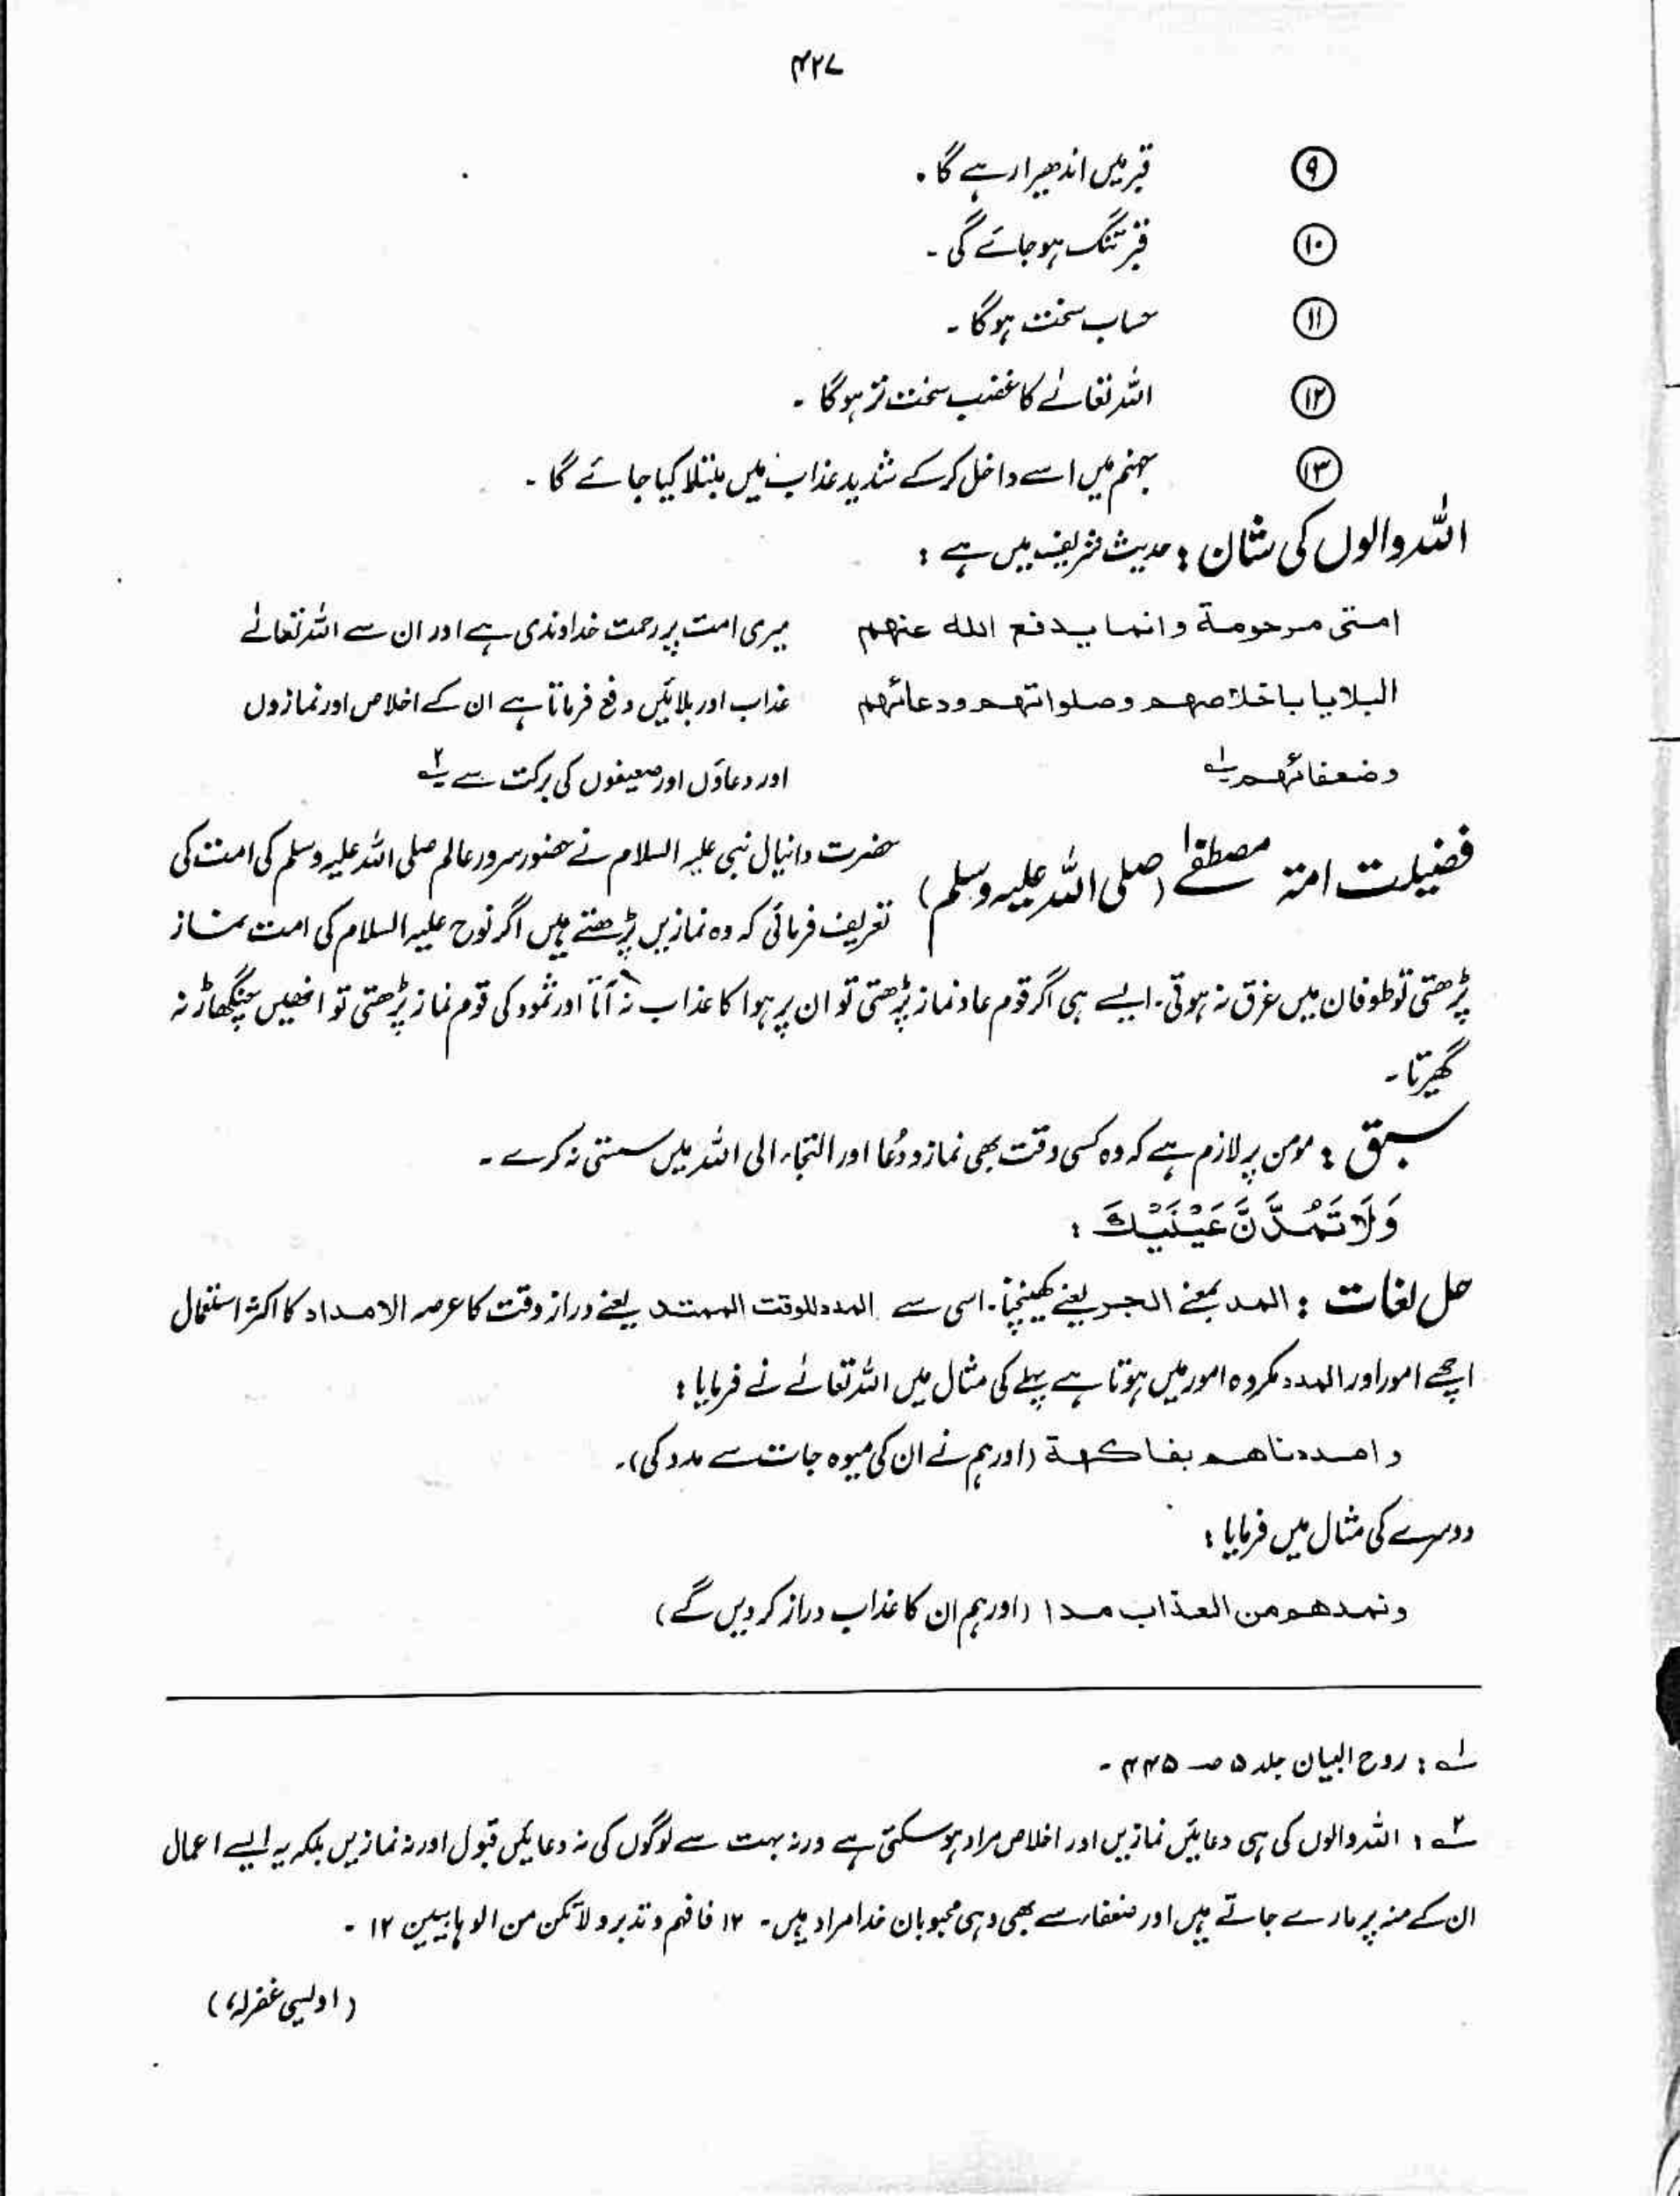 ۴۲۷
۹ قبر میں اندھیرا رہے گا ۔
۱۰ قبر تنگ ہو جائے گی ۔
۱۱ حساب سخت ہوگا ۔
۱۲ اللہ تعالےٰ کا غضب سخت تر ہوگا ۔
۱۳ جہنم میں اسے داخل کرکے شدید عذاب میں مبتلا کیا جائے گا ۔
اللہ والوں کی شان : حدیث شریف میں ہے :
امتی مرحومة وانما یدفع اللہ عنهم
البلایا باخلاصهم وصلواتهم ودعائهم
وضعفائهم ۱ے
میری امت پر رحمت خداوندی ہے اور ان سے اللہ تعالےٰ
عذاب اور بلائیں دفع فرماتا ہے ان کے اخلاص اور نمازوں
اور دعاؤں اور ضعیفوں کی برکت سے ۲ے
فضیلت امتہ مصطفےٰ (صلی اللہ علیہ وسلم) حضرت دانیال نبی علیہ السلام نے حضور سرور عالم صلی اللہ علیہ وسلم کی امت کی
تعریف فرمائی کہ وہ نمازیں پڑھتے ہیں اگر نوح علیہ السلام کی امت نماز
پڑھتی تو طوفان میں غرق نہ ہوتی۔ ایسے ہی اگر قوم عاد نماز پڑھتی تو ان پر ہوا کا عذاب نہ آتا اور ثمود کی قوم نماز پڑھتی تو انھیں چنگھاڑ نہ
گھیرتا ۔
سبق : مومن پر لازم ہے کہ وہ کسی وقت بھی نماز و دُعا اور التجاء الی اللہ میں سستی نہ کرے ۔
وَلَا تَمُدَّنَّ عَیْنَیْكَ :
حل لغات : المد بمعنے الجر یعنے کھینچنا۔ اسی سے المدد للوقت الممتد یعنے دراز وقت کا عرصہ الامداد کا اکثر استعمال
اچھے امور اور المدد مکروہ امور میں ہوتا ہے پہلے کی مثال میں اللہ تعالےٰ نے فرمایا :
وامددناهم بفاکهة (اور ہم نے ان کی میوہ جات سے مدد کی)۔
دوسرے کی مثال میں فرمایا :
ونمدهم من العذاب مدا (اور ہم ان کا عذاب دراز کر دیں گے)
۱ے : روح البیان جلد ۵ صـ ۴۴۵ ۔
۲ے : اللہ والوں کی ہی دعائیں نمازیں اور اخلاص مراد ہو سکتی ہے ورنہ بہت سے لوگوں کی نہ دعائیں قبول اور نہ نمازیں بلکہ یہ ایسے اعمال
ان کے منہ پر مارے جاتے ہیں اور ضعفاء سے بھی وہی محبوبان خدا مراد ہیں۔ ۱۲ فافہم وتدبر ولا تکن من الوہابیین ۱۲ ۔
(اویسی غفرلہٗ)